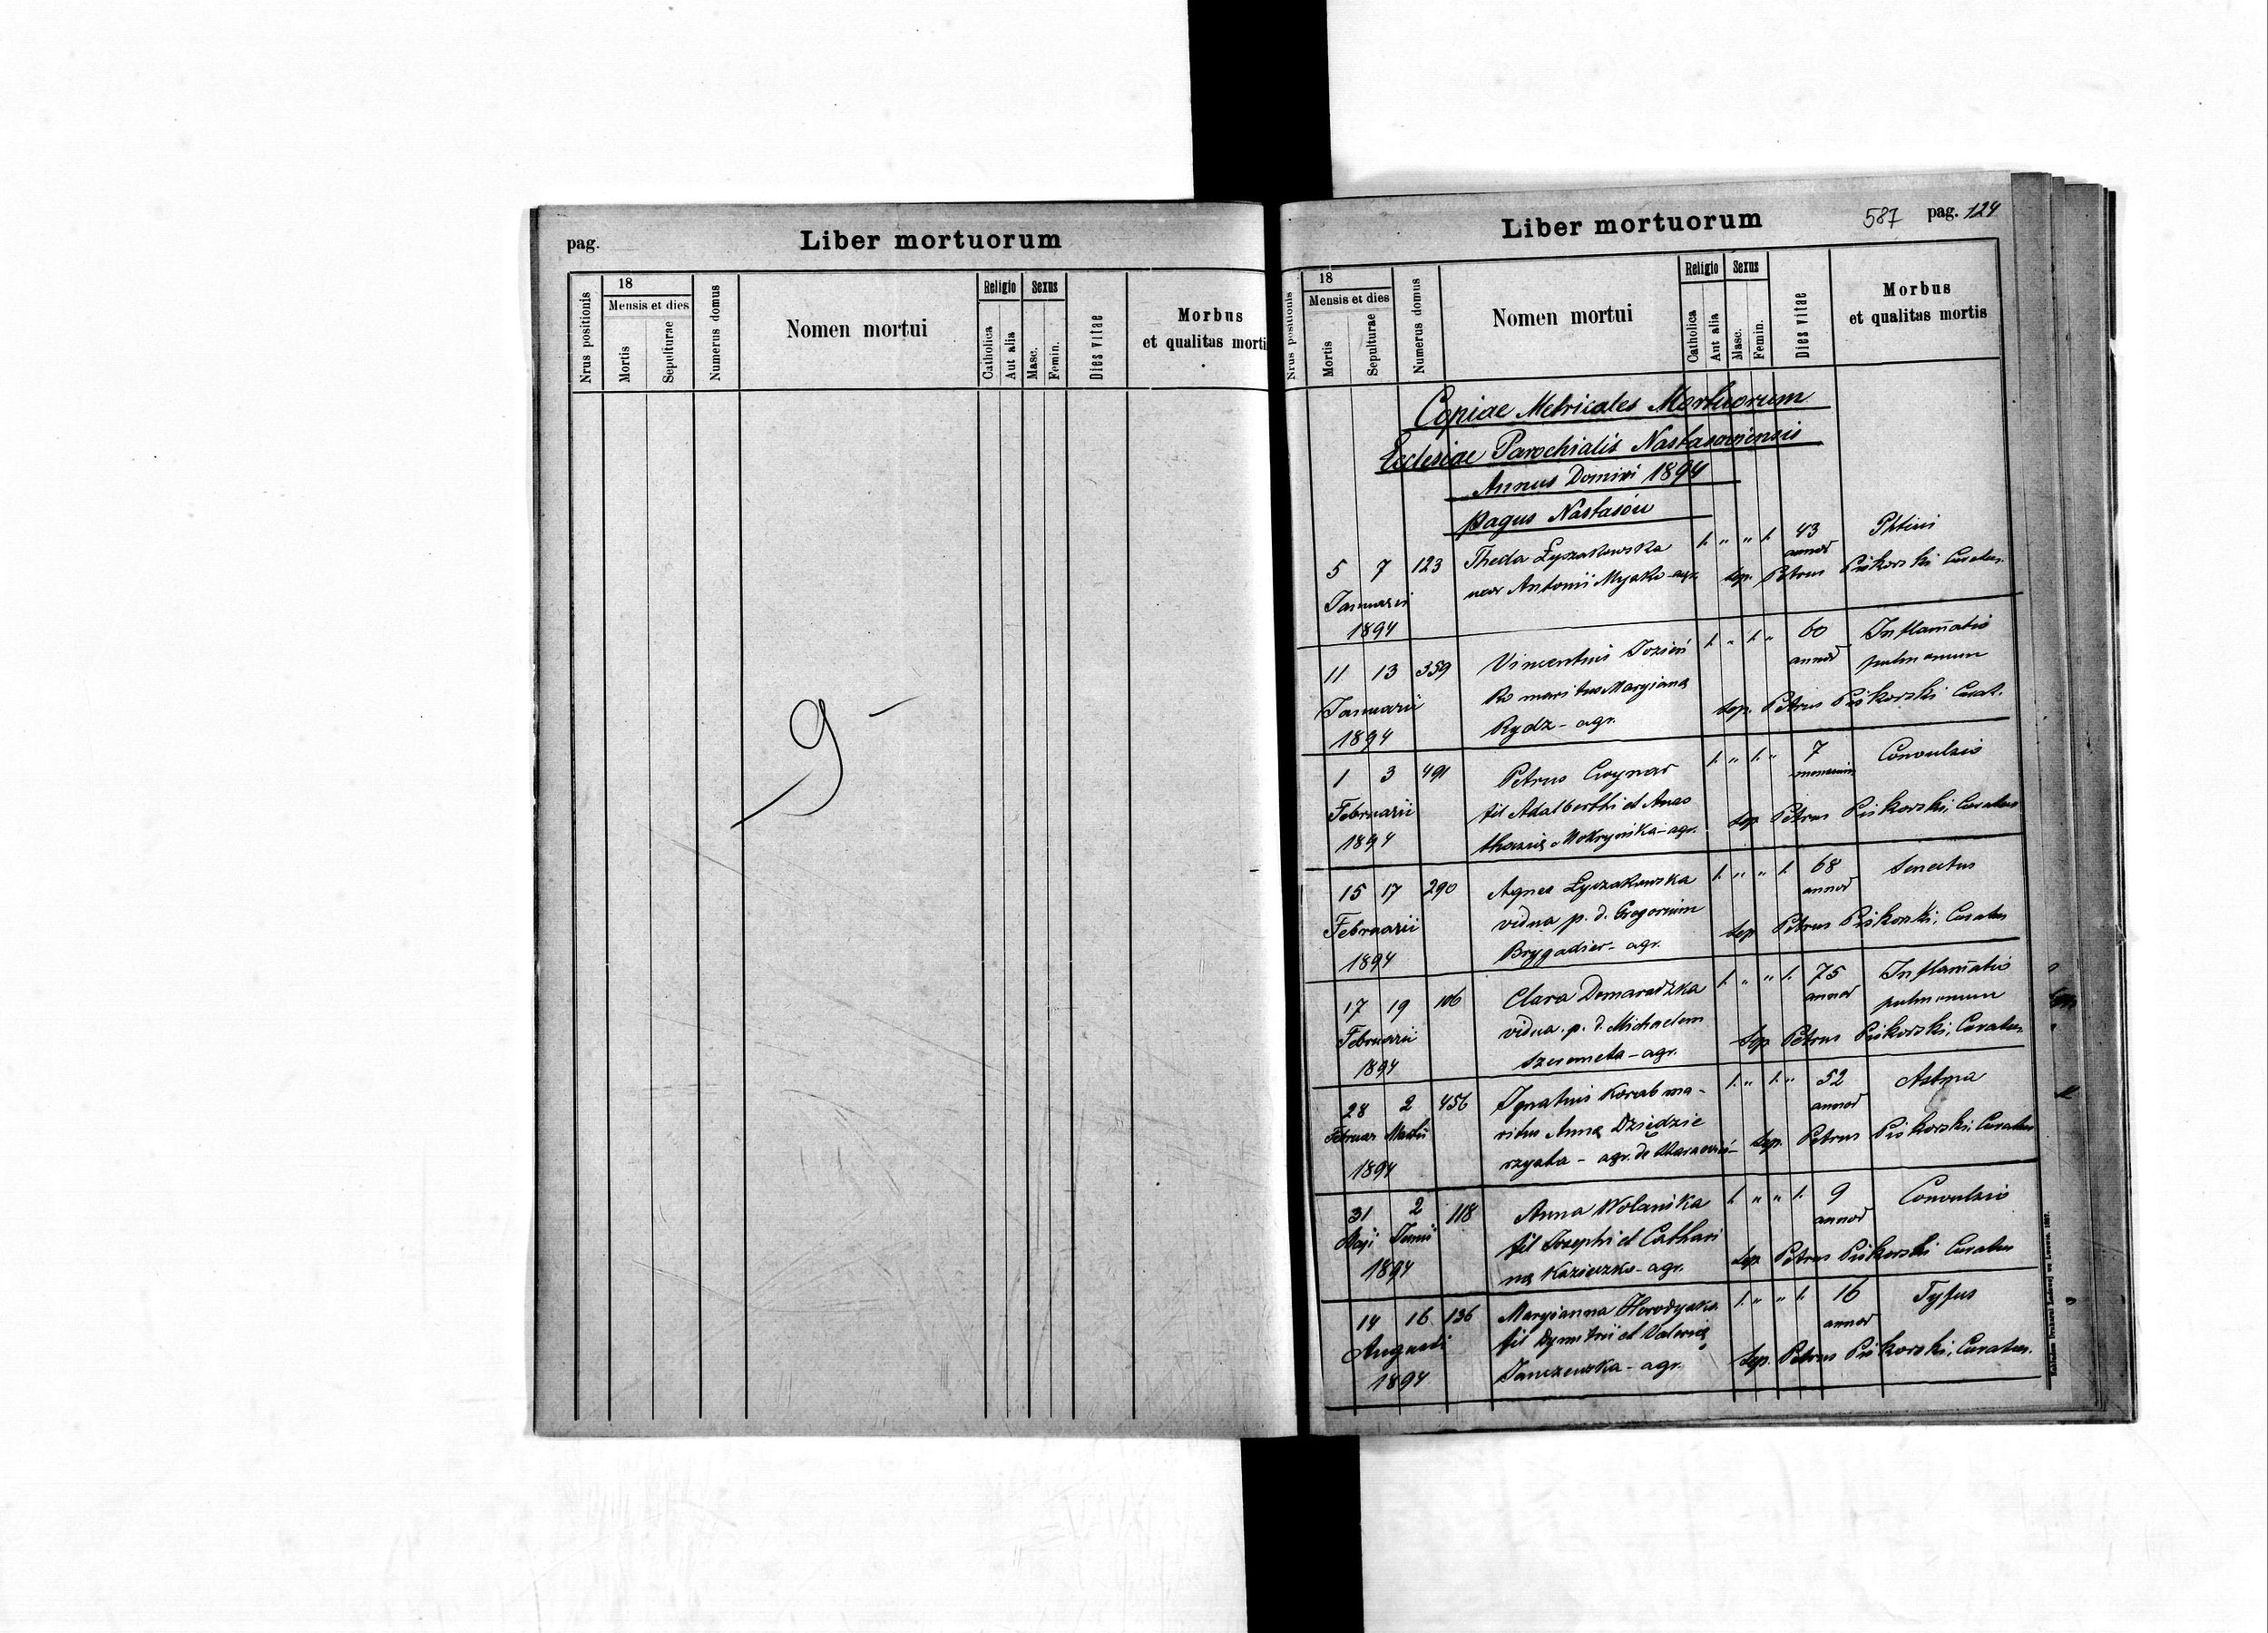 pag.
Liber mortuorum
Nrus positionis
18
Mensis et dies
Mortis
Sepulturae
Numerus domus
Nomen mortui
Religio
Catholica
Aut alia
Sexus
Masc.
Femin.
Dies vitae
Morbus
et qualitas morti
9
Liber mortuorum
587 pag. 124
Nrus positionis
18
Mensis et dies
Mortis
Sepulturae
Numerus domus
Nomen mortui
Religio
Catholica
Aut alia
Sexus
Masc.
Femin.
Dies vitae
Morbus
et qualitas mortis
Copiae Metricales Mortuorum
Ecclesiae Parochialis Nastasoviensis
Annus Domini 1894
pagus Nastasów
5 7 123 Thecla Łyczakowska 1. " " 1. 43 Phtisis
annor
Januarii uxor Antonii Myśko - agr. sep. Petrus Piskorski Curatus.
1894
11 13 359 Vincentius Jozień 1. " 1. " 60 Inflam̄atio
annor pulmonum
Januarii ko maritus Maryianę sep. Petrus Piskorski Curat.
1894 Rydz - agr.
1 3 491 Petrus Cwynar 1. " 1. " 7 Convulsio
mensium
Februarii fil Adalberthi et Anas sep Petrus Piskorski, Curatus
1894 thasię Mokryńska - agr.
15 17 290 Agnes Łyczakowska 1. " " 1. 68 Senectus
annor
Februarii vidua p. d. Gregorium sep Petrus Piskorski, Curatus
1894 Brygadier - agr.
17 19 106 Clara Domaradzka 1. " " 1. 75 Inflam̄atio
annor pulmonum
Februarii vidua. p. d. Michaelem sep Petrus Piskorski, Curatus.
1894 Szeremeta - agr.
28 2 456 Ignatius Korab ma- 1. " 1. " 52 Astma
annor
Februar Martii ritus Annę Dziedzie sep. Petrus Piskorski, Curatus
1894 rzyata - agr. de
31 2 118 Anna Wolańska 1. " " 1. 9 Convulsio
annor
Maji Junii fil Josephi et Cathari sep Petrus Piskorski Curatus
1894 nę Kazieczko - agr.
14 16 136 Maryianna Horodyska 1. " " 1. 16 Tyfus
annor
Augusti fil Dymitrii et Valerię sep. Petrus Piskorski, Curatus.
1894 Janczewska - agr.
Nakładem Drukarni Ludowej we Lwowie. 1887.